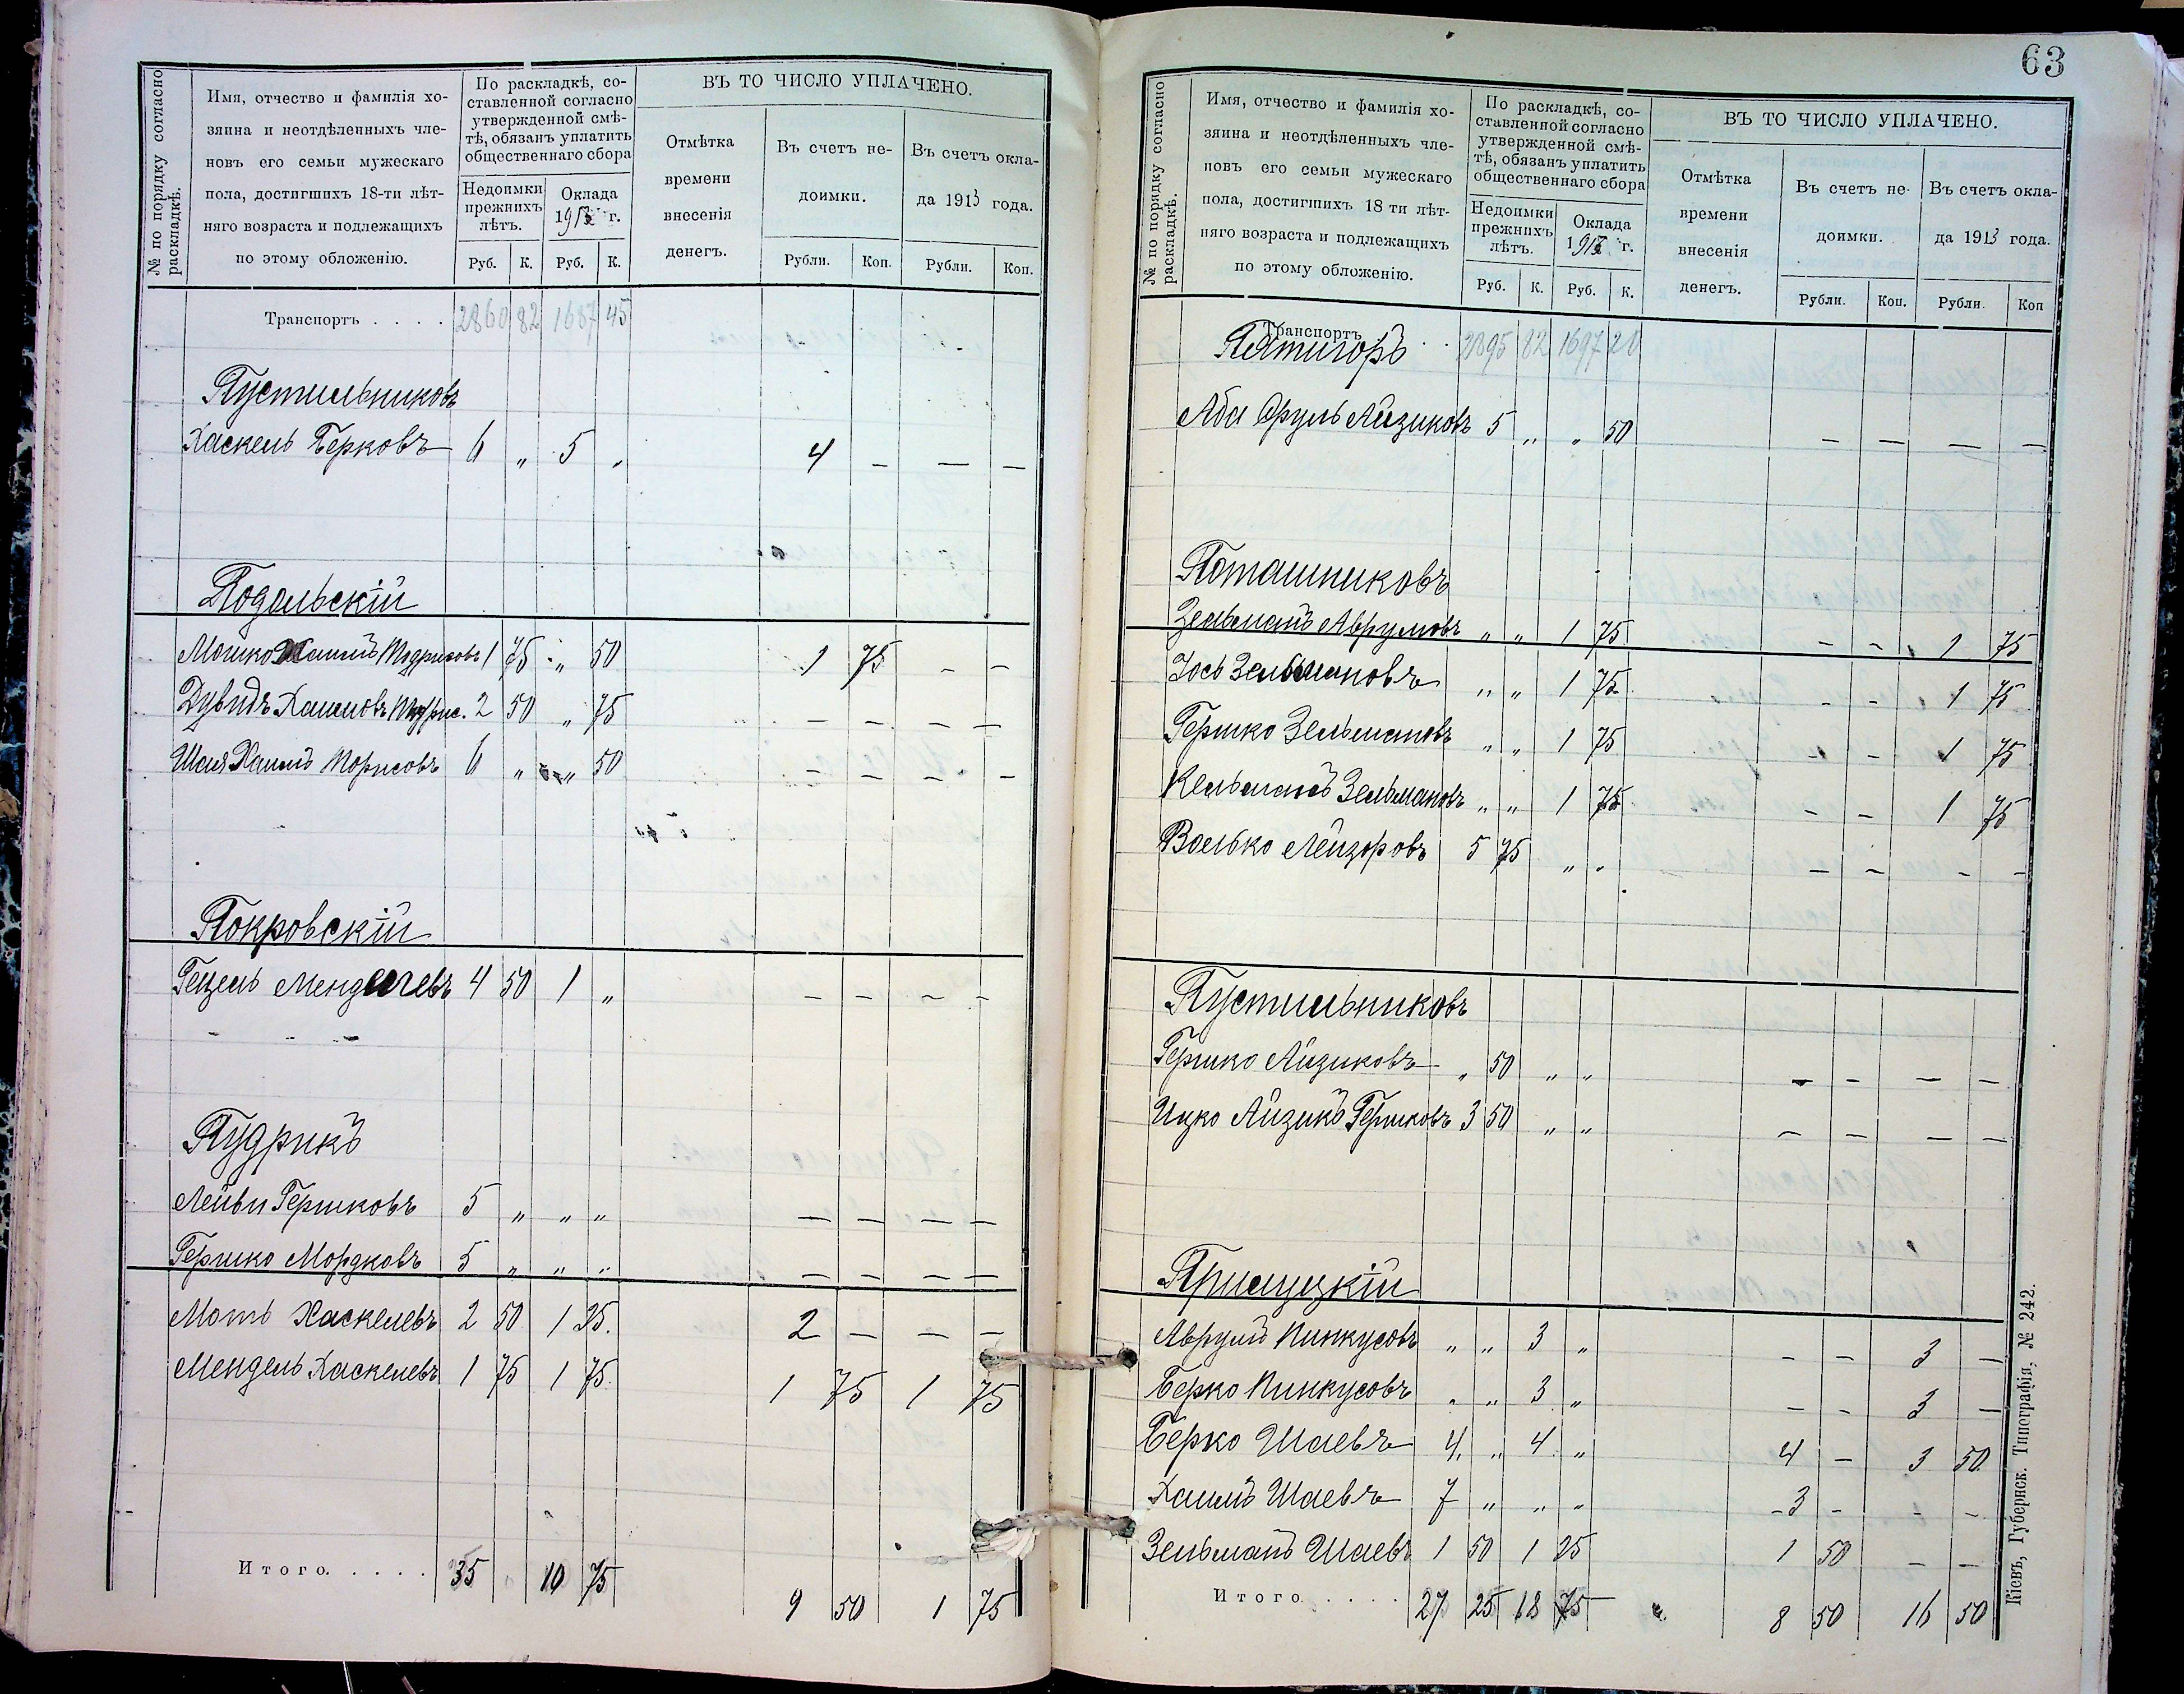 № по порядку согласно раскладкѣ.
Имя, отчество и фамилія хо-
зяина и неотдѣленныхъ чле-
новъ его семьи мужескаго
пола, достигшихъ 18-ти лѣт-
няго возраста и подлежащихъ
по этому обложенію.
По раскладкѣ, со-
ставленной согласно
утвержденной смѣ-
тѣ, обязанъ уплатить
общественнаго сбора
Недоимки
прежнихъ
лѣтъ.
Оклада
1913 г.
Руб. К. Руб. К.
ВЪ ТО ЧИСЛО УПЛАЧЕНО.
Отмѣтка
времени
внесенія
денегъ.
Въ счетъ не-
доимки.
Въ счетъ окла-
да 1913 года.
Рубли. Коп. Рубли. Коп.
Транспортъ . . . . 2860 82 1687 45
Пустильниковъ
Хаскель Берковъ 6 „ 5 „ 4 — — —
Подольскій
Мошко Хаимъ 1 75 „ 50 1 75 — —
Дувидъ Хаимовъ 2 50 „ 75 — — — —
Шая Хаимъ 6 „ „ 50 — — — —
Покровскій
Гецель Менделевъ 4 50 1 „ — — — —
Пудрикъ
Лейви Гершковъ 5 „ „ „ — — — —
Гершко Мордковъ 5 „ „ „ — — — —
Моть Хаскелевъ 2 50 1 25 2 — — —
Мендель Хаскелевъ 1 75 1 75 1 75 1 75
Итого. . . . . 35 10 75 9 50 1 75
63
№ по порядку согласно раскладкѣ.
Имя, отчество и фамилія хо-
зяина и неотдѣленныхъ чле-
новъ его семьи мужескаго
пола, достигшихъ 18 ти лѣт-
няго возраста и подлежащихъ
по этому обложенію.
По раскладкѣ, со-
ставленной согласно
утвержденной смѣ-
тѣ, обязанъ уплатить
общественнаго сбора
Недоимки
прежнихъ
лѣтъ.
Оклада
1913 г.
Руб. К. Руб. К.
ВЪ ТО ЧИСЛО УПЛАЧЕНО.
Отмѣтка
времени
внесенія
денегъ.
Въ счетъ не-
доимки.
Въ счетъ окла-
да 1913 года.
Рубли. Коп. Рубли. Коп
Транспортъ . . 2895 82 1697 20
Пятигоръ
Аба Сруль Айзиковъ 5 „ „ 50 — — — —
Поташниковъ
Зельманъ Аврумовъ „ „ 1 75 — — 1 75
Іось Зельмановъ „ „ 1 75 — — 1 75
Гершко Зельмановъ „ „ 1 75 — — 1 75
Кельманъ Зельмановъ „ „ 1 75 — — 1 75
Волько Лейзоровъ 5 75 „ „ — — — —
Пустильниковъ
Гершко Айзиковъ „ 50 „ „ — — — —
Ицко Айзикъ Гершковъ 3 50 „ „ — — — —
Прилуцкій
Аврумъ Пинкусовъ „ „ 3 „ — — 3 —
Берко Пинкусовъ „ „ 3 „ — — 3 —
Берко Шаевъ 4 „ 4 „ 4 — 3 50
Хаимъ Шаевъ 7 „ „ „ 3 — — —
Зельманъ Шаевъ 1 50 1 25 1 50 — —
Итого . . . . 27 25 18 75 8 50 16 50
Кіевъ, Губернск. Типографія, № 242.